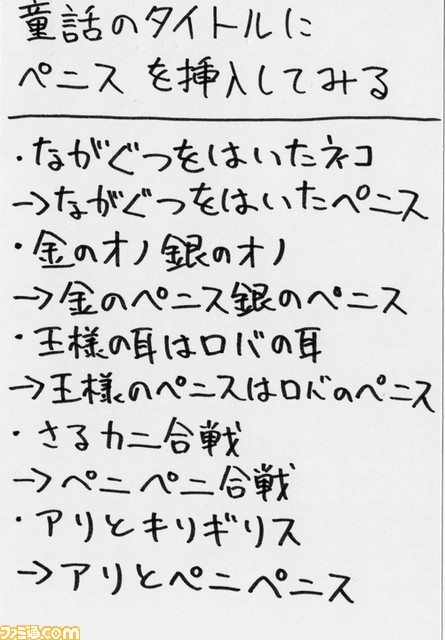 童話のタイトルに
ペニス を挿入してみる
・ながぐつをはいたネコ
→ながぐつをはいたペニス
・金のオノ銀のオノ
→金のペニス銀のペニス
・王様の耳はロバの耳
→王様のペニスはロバのペニス
・さるカニ合戦
→ペニペニ合戦
・アリとキリギリス
→アリとペニペニス
ファミ通.com